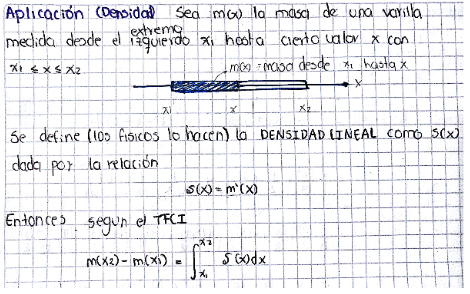 Aplicación (Densidad) Sea m(x) la masa de una varilla
medida desde el extremo izquierdo x₁ hasta cierto valor x con
x₁ ≤ x ≤ x₂
m(x) = masa desde x₁ hasta x
x
x₁ x x₂
Se define (los físicos lo hacen) la DENSIDAD LINEAL como S(x)
dada por la relación
S(x) = m'(x)
Entonces según el TFCI
m(x₂) - m(x₁) = ∫_{x₁}^{x₂} S(x)dx